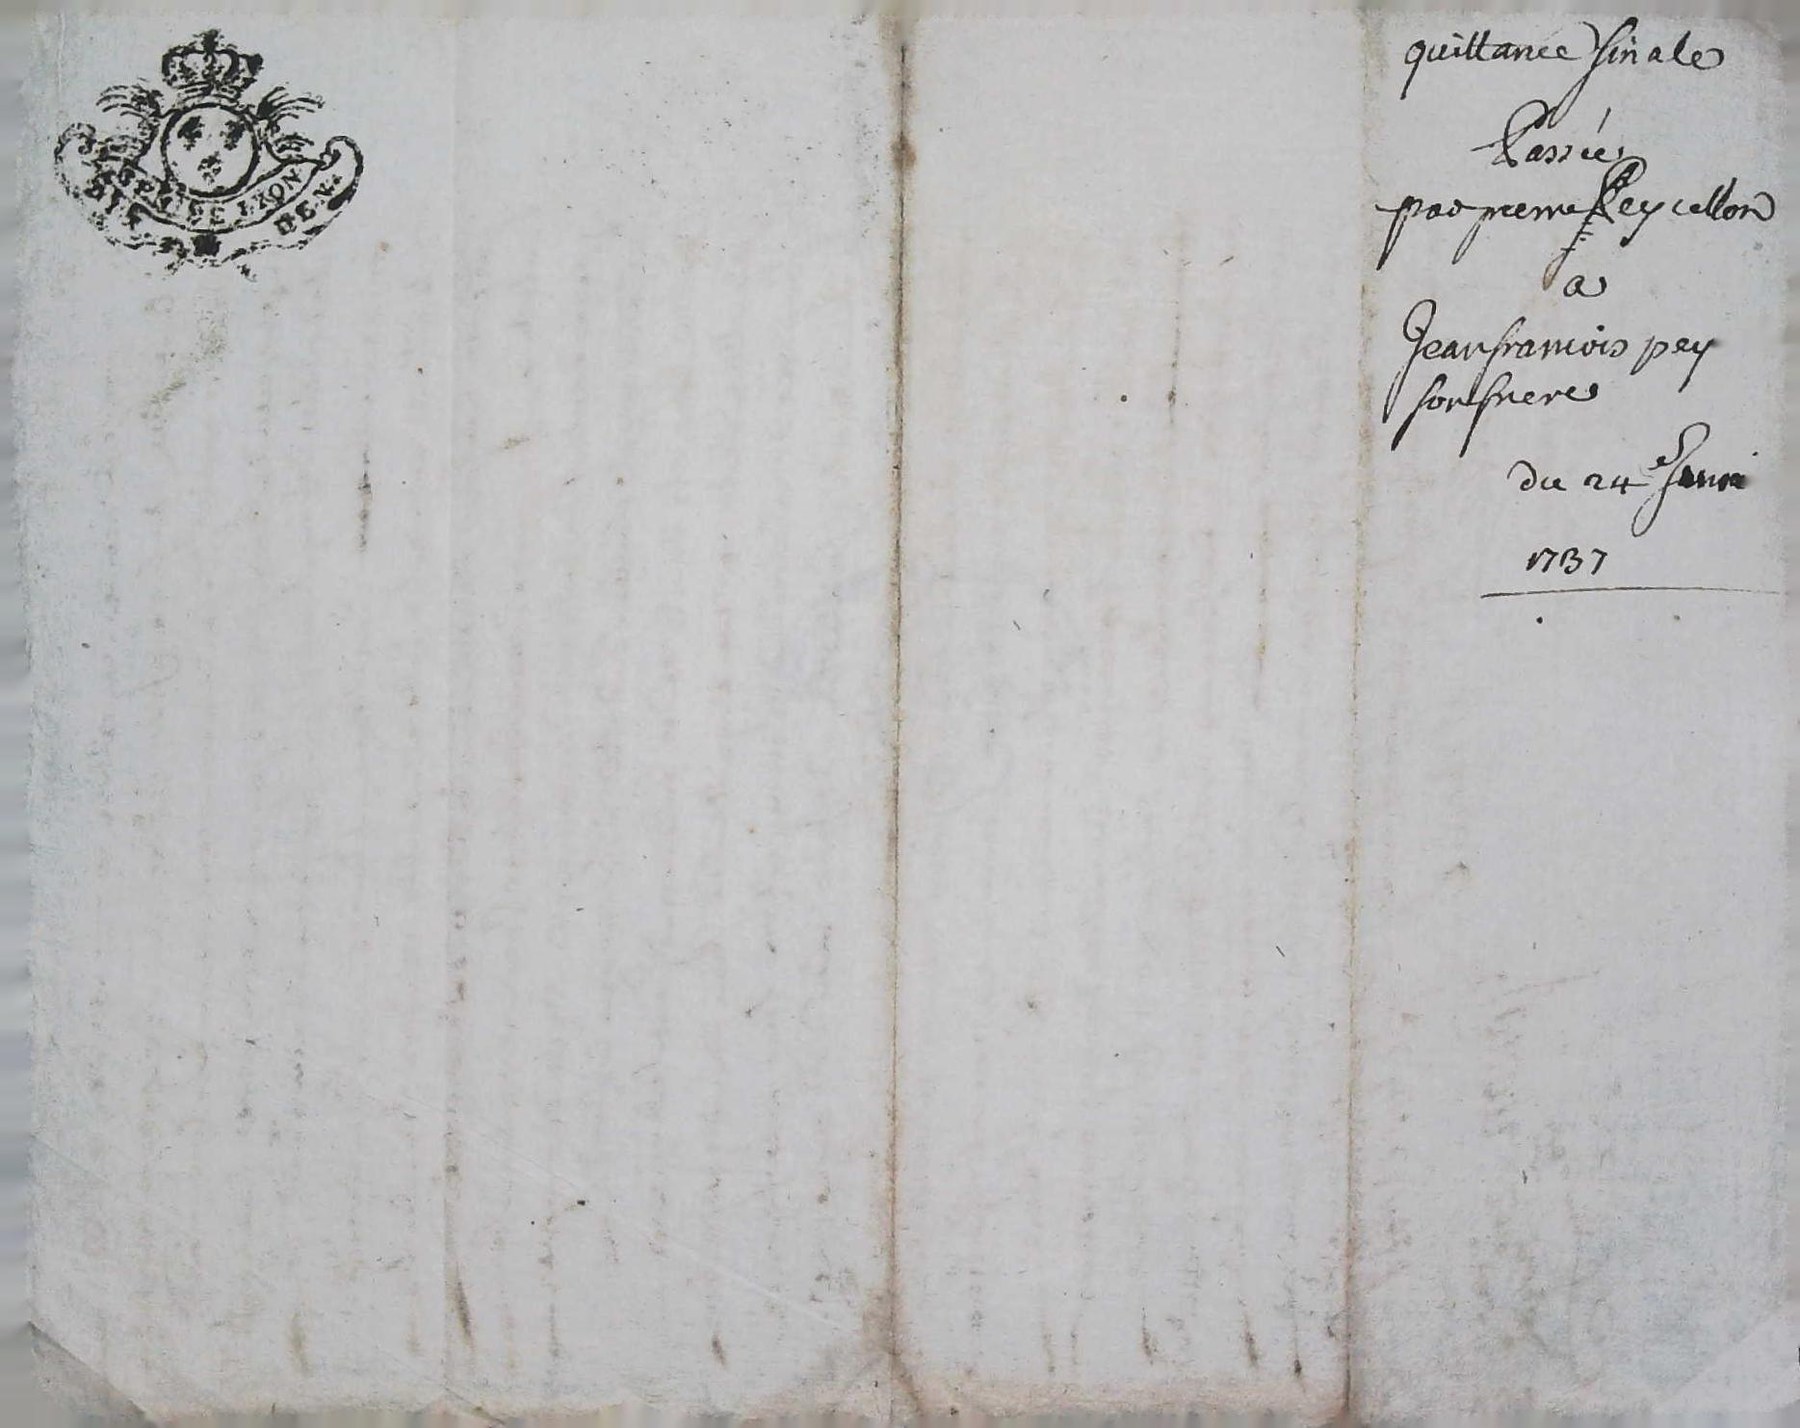 GEN. DE LYON
SIX DEN.
quittance finale
Passée
par pierre Peycellon
a
Jean francois pey
son frere
du 24e
1737